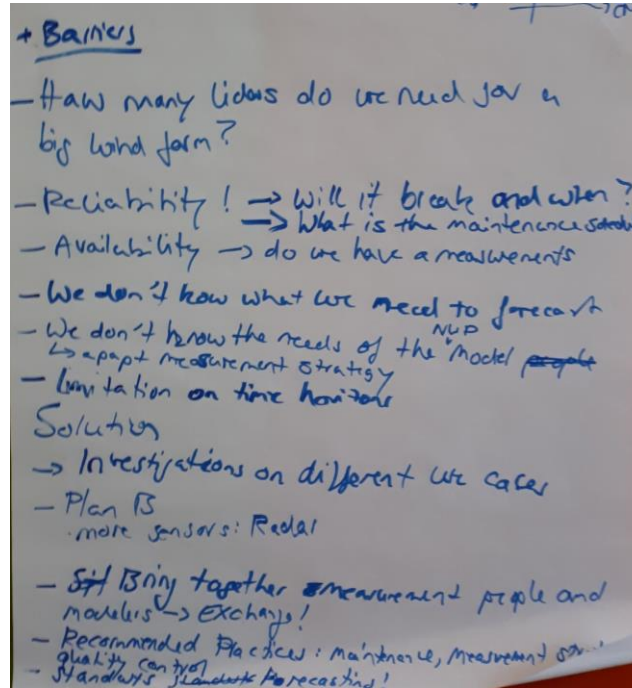 + Barriers
- How many lidars do we need for a
big wind farm?
- Reliability! → Will it break and when?
→ What is the maintenence schedu
- Availability → do we have a measurements
- We don't know what we need to forecast
- We don't know the needs of the NWP model
↳ apapt measurement strategy
- Limitation on time horizons
Solution
→ Investigations on different use cases
- Plan B
. more sensors: Radar
- Bring together measurement people and
modelers → Exchange!
- Recommended Practices: maintenance, measurement
quality control
- Forecasting!